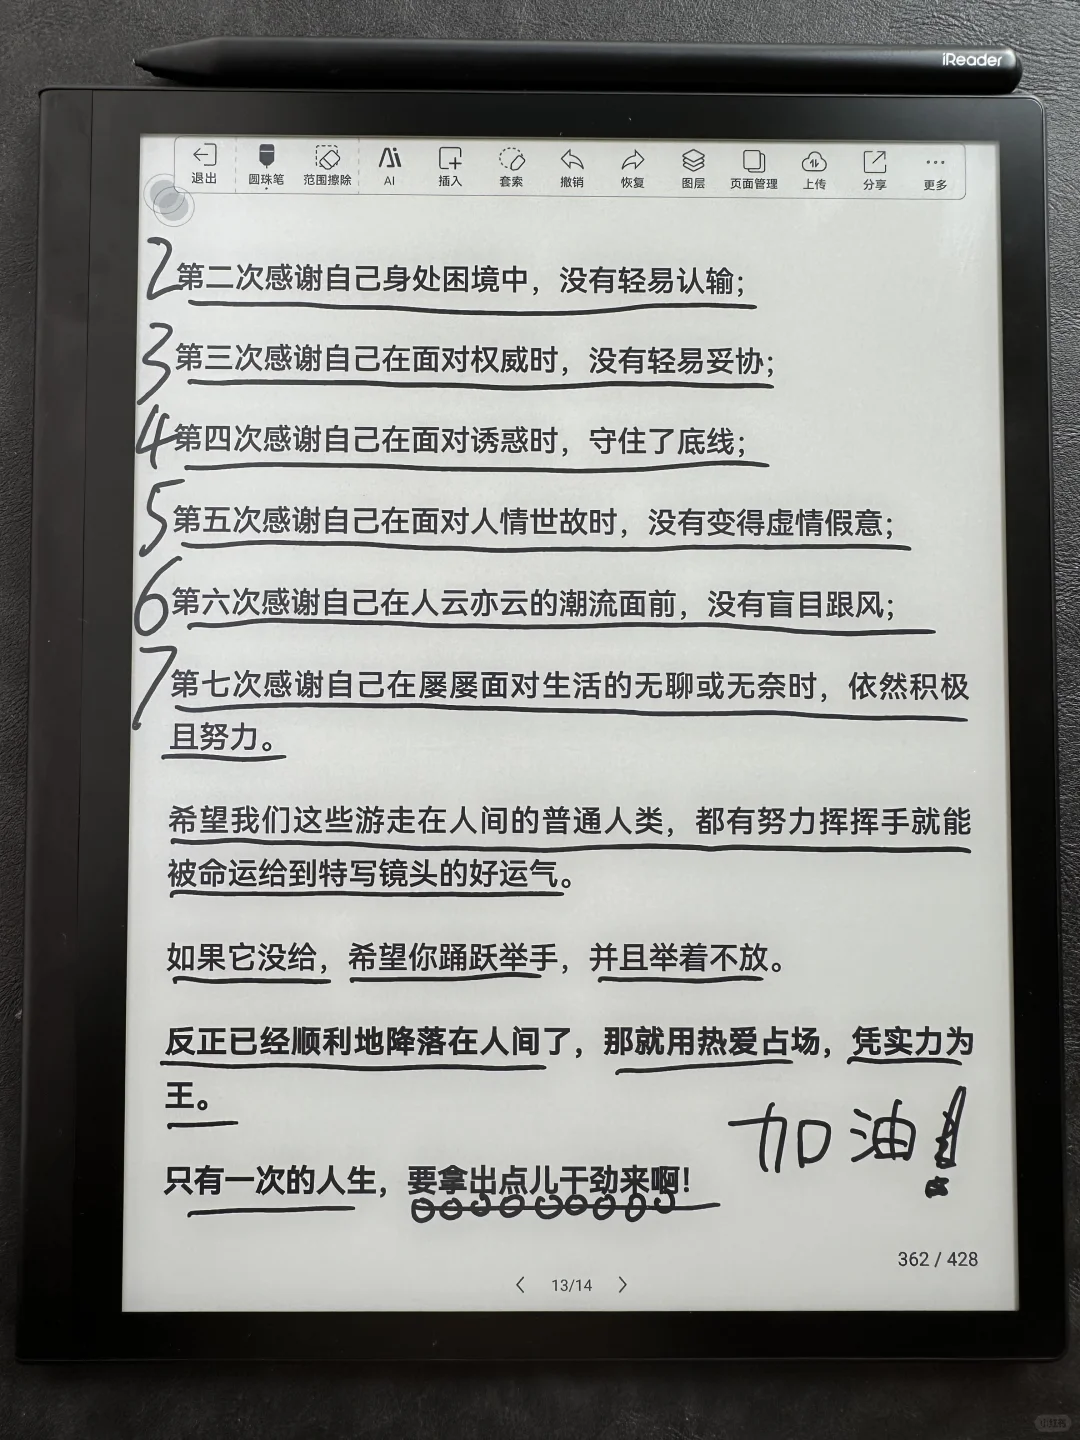 iReader
退出 圆珠笔 范围擦除 AI 插入 套索 撤销 恢复 图层 页面管理 上传 分享 更多
2 第二次感谢自己身处困境中，没有轻易认输；
3 第三次感谢自己在面对权威时，没有轻易妥协；
4 第四次感谢自己在面对诱惑时，守住了底线；
5 第五次感谢自己在面对人情世故时，没有变得虚情假意；
6 第六次感谢自己在人云亦云的潮流面前，没有盲目跟风；
7 第七次感谢自己在屡屡面对生活的无聊或无奈时，依然积极
且努力。
希望我们这些游走在人间的普通人类，都有努力挥挥手就能
被命运给到特写镜头的好运气。
如果它没给，希望你踊跃举手，并且举着不放。
反正已经顺利地降落在人间了，那就用热爱占场，凭实力为
王。
加油！
只有一次的人生，要拿出点儿干劲来啊！
362 / 428
13/14
小红书